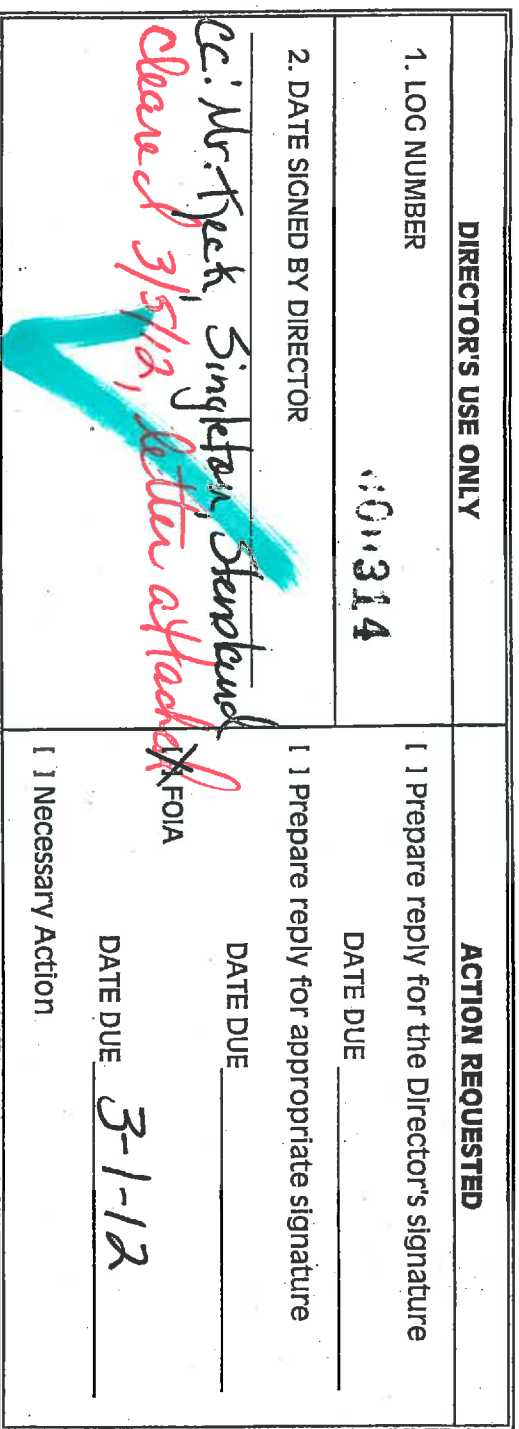 DIRECTOR'S USE ONLY
1. LOG NUMBER
000314
2. DATE SIGNED BY DIRECTOR
cc: Mr. Keck, Singleton,
cleared 3/5/12, letter attached
ACTION REQUESTED
[ ] Prepare reply for the Director's signature
DATE DUE
[ ] Prepare reply for appropriate signature
DATE DUE
[X] FOIA
DATE DUE 3-1-12
[ ] Necessary Action